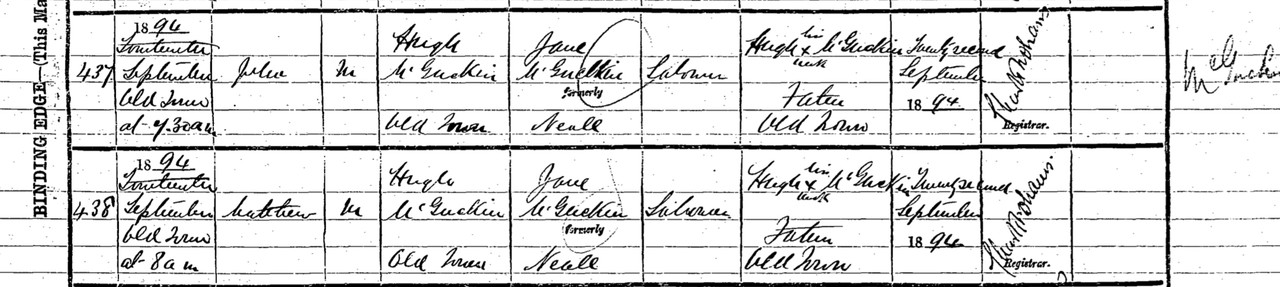 BINDING EDGE—(This Ma
437
1894
Fourteenth
September
Old Town
at 7.30 a m
John
M
Hugh
McGuckin
Old Town
Jane
McGuckin
formerly
Neall
Labourer
Hugh his x mark McGuckin
Father
Old Town
Twenty second
September
1894
Registrar.
McGuckin
438
1894
Fourteenth
September
Old Town
at 8 a m
Matthew
M
Hugh
McGuckin
Old Town
Jane
McGuckin
formerly
Neall
Labourer
Hugh his x mark McGuckin
Father
Old Town
Twenty second
September
1894
Registrar.